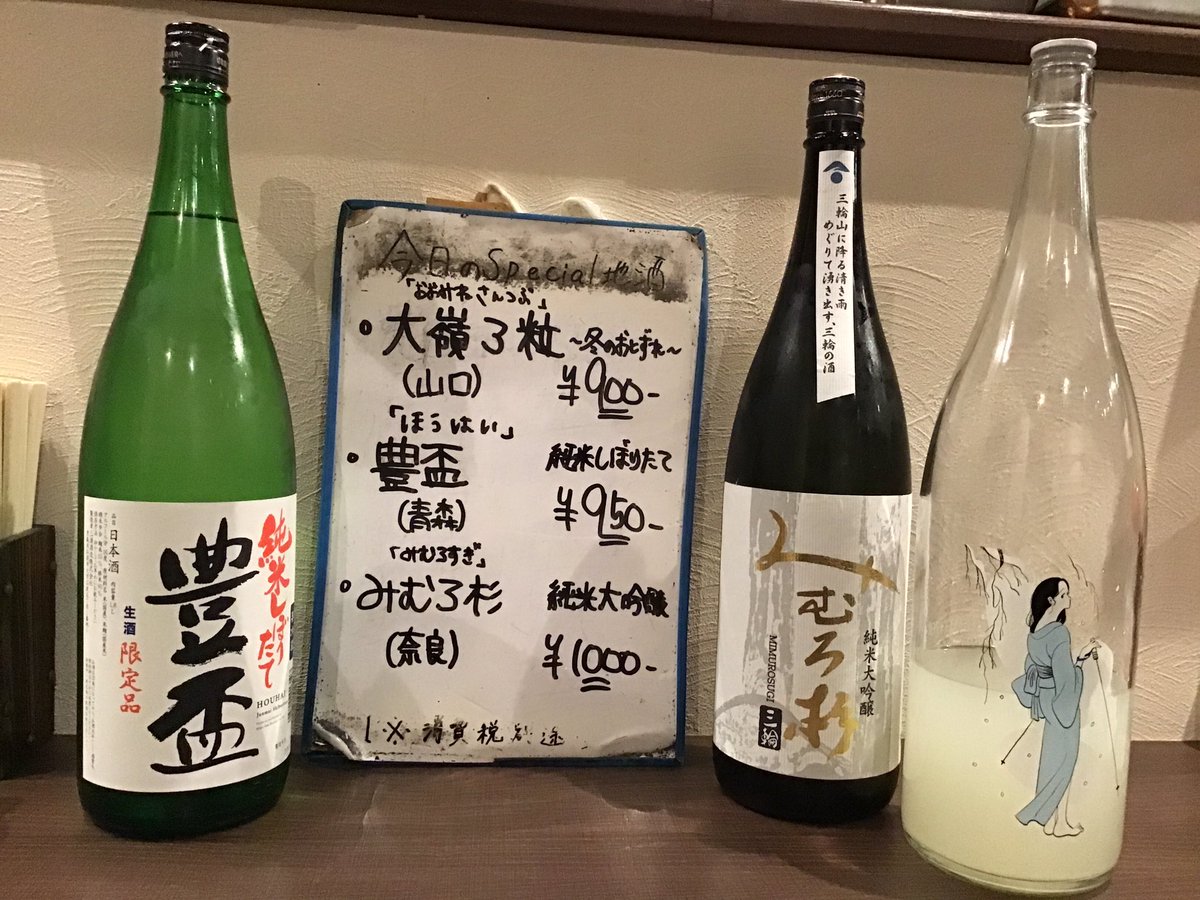 純米しぼりたて
豊盃
品目 日本酒
生酒
限定品
HOUHAI
今日のSpecial地酒
「おおみねさんつぶ」
大嶺3粒 ~冬のおとずれ~
(山口) ¥900-
「ほうはい」
豊盃 純米しぼりたて
(青森) ¥950-
「みむろすぎ」
みむろ杉 純米大吟醸
(奈良) ¥1000-
※消費税別途
三輪山に降る清き雨
めぐりて湧き出す、三輪の酒
みむろ杉
純米大吟醸
MIMUROSUGI
三輪